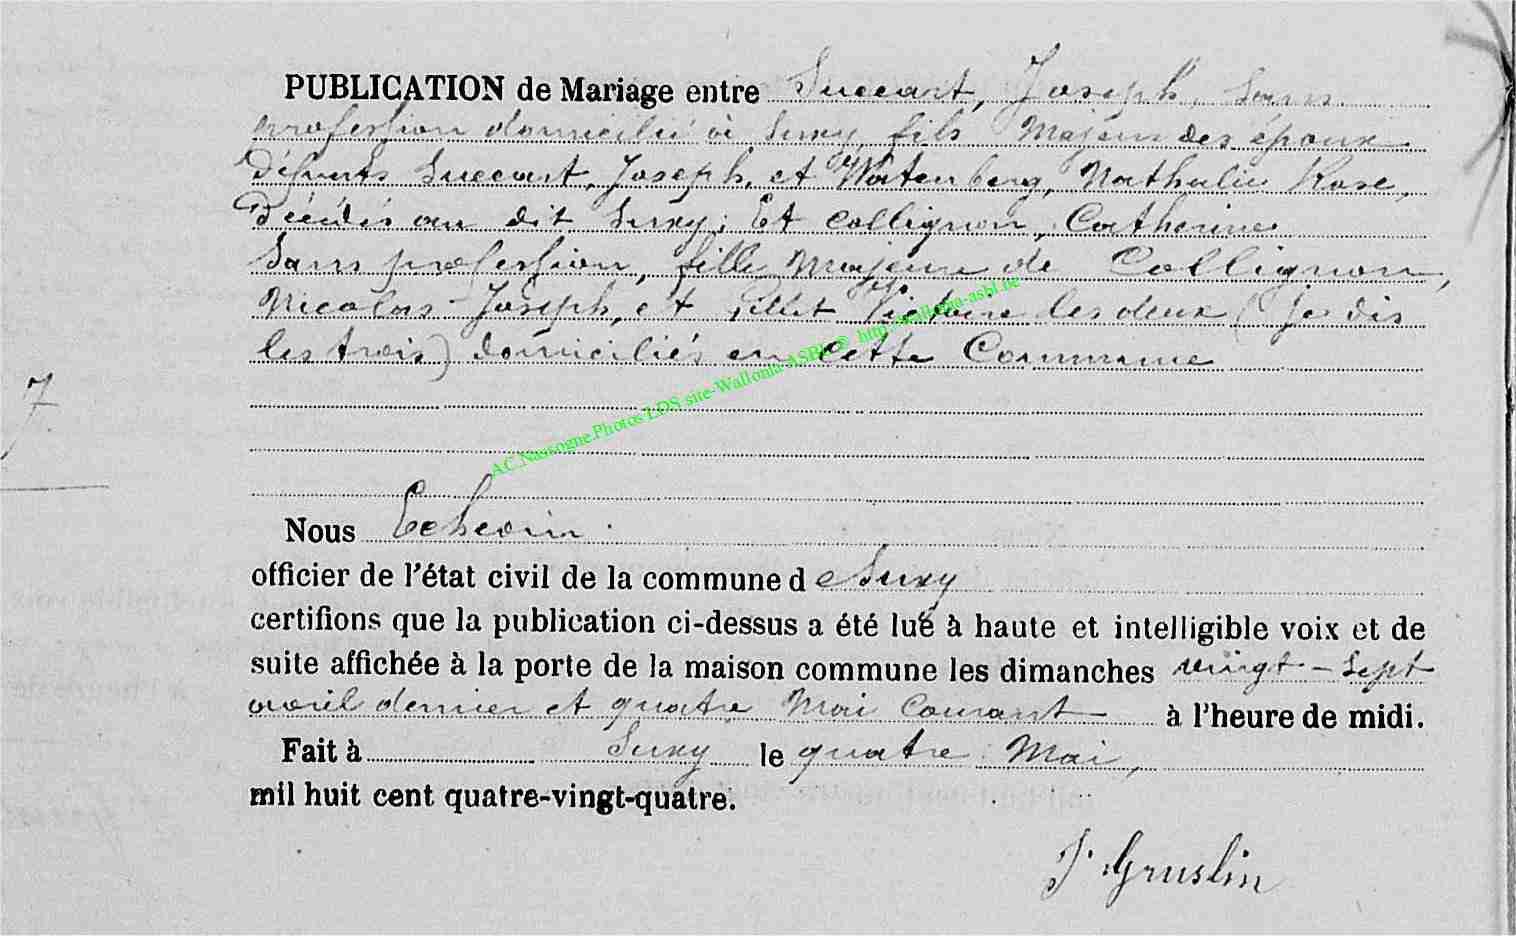 PUBLICATION de Mariage entre Succart, Joseph, Sans
profession domicilié à Suxy, fils Majeur des époux
Défunts Succart, Joseph, et Watenberg, Nathalie Rose,
Décédés au dit Suxy; Et Collignon, Catherine
Sans profession, fille Majeure de Collignon,
Nicolas-Joseph, et Victoire les deux (je dis
les trois) domiciliés en cette Commune
AC.Nassogne.Photos LDS site-Wallonia-ASBL © http://wallonia-asbl.be
7
Nous Echevin
officier de l'état civil de la commune de Suxy
certifions que la publication ci-dessus a été lue à haute et intelligible voix et de
suite affichée à la porte de la maison commune les dimanches vingt-sept
avril dernier et quatre Mai Courant à l'heure de midi.
Fait à Suxy le quatre Mai,
mil huit cent quatre-vingt-quatre.
J. Gruslin